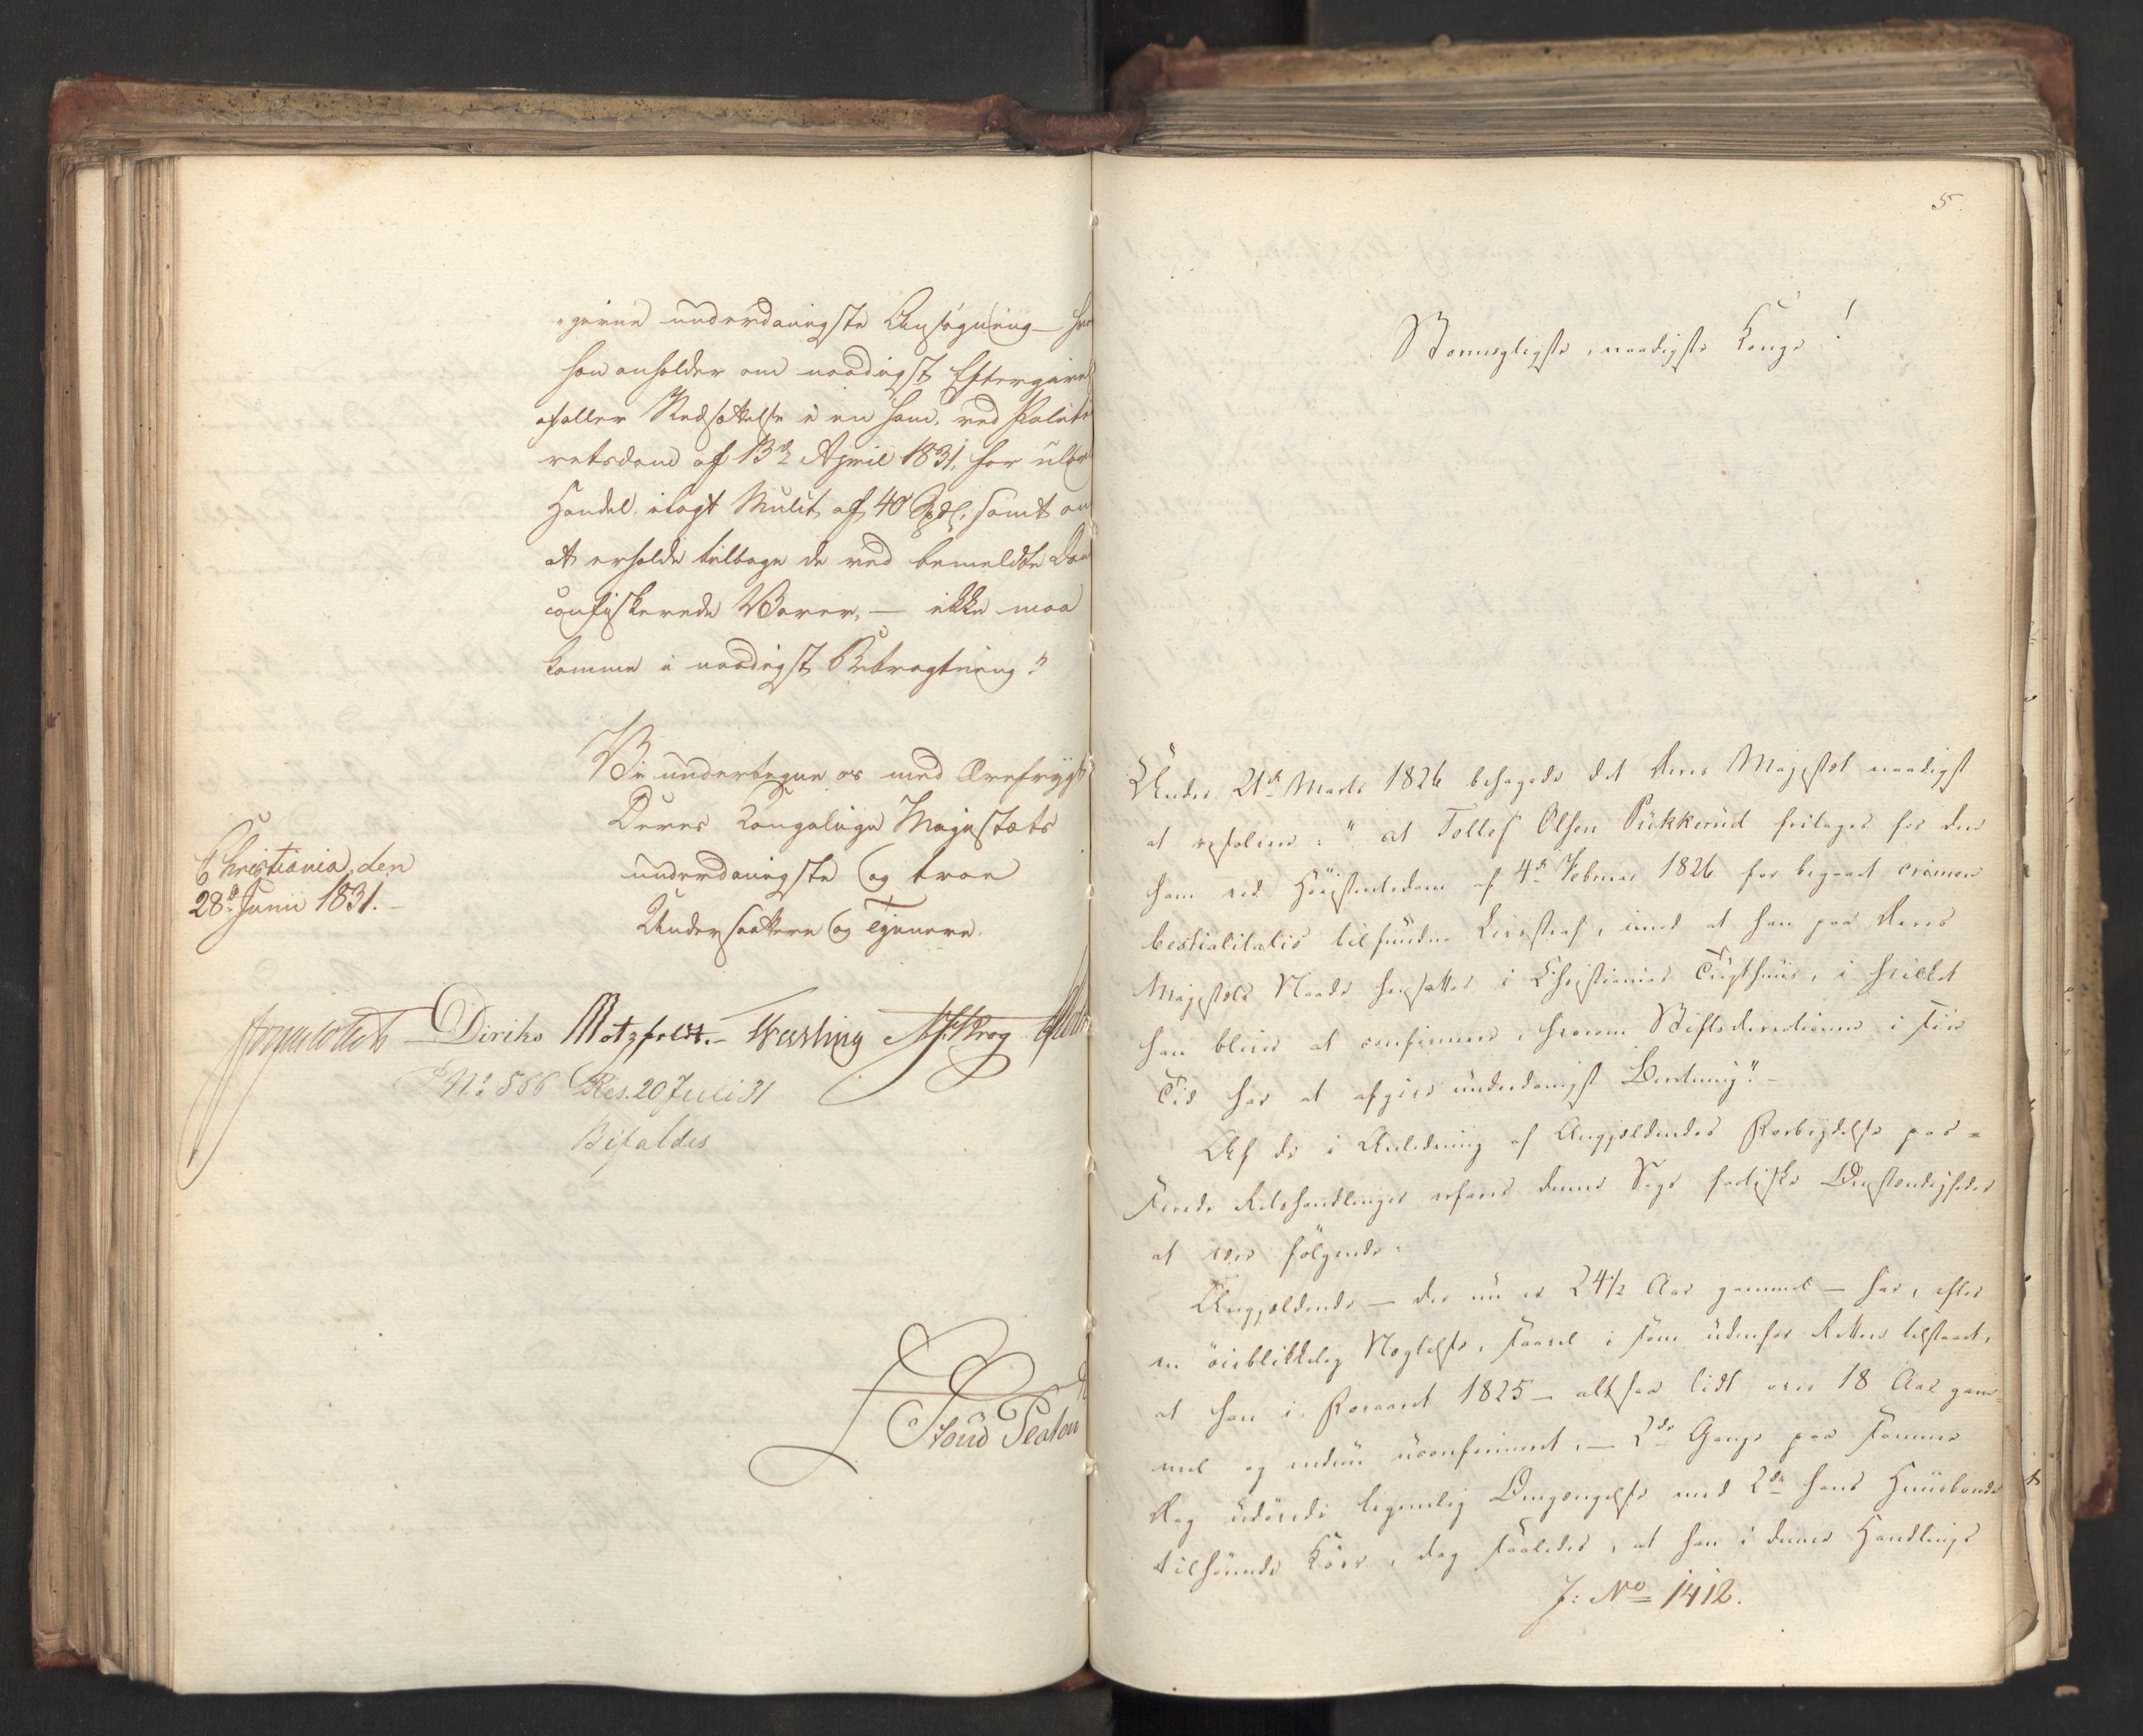 givne underdanigste Ansøgning — hvor
han anholder om naadigst Eftergivel
afeller Nedsættelse i en ham, ved Politi
retsdom af 13de April 1831, for ulov
Handel, ilagt Mulct af 40 Spdl, samt om
at erholde tilbage de ved bemeldte Dom
confiskerede Varer, — ikke maa
komme i naadigst Betragtning."
Vi undertegne os med Ærefrygt
Deres Kongelige Majestæts
underdanigste og troe
Undersaatter og Tjenere.
Christiania, den
28de Junii 1831.
Diriks Motzfeldt. Vessling Krog
No 566 Res. 20 Juli 31
Bifaldes
5.
Stormægtigste, naadigste Konge!
Under 21de Marts 1826 behagede det Deres Majestæt naadigst
at resolvere: "at Tollef Olsen Pukkerud fritages for den
ham ved Høiesteretsdom af 4de Februar 1826 for begaaet crimen
bestialitatis tilfundne Livsstraf, imod at han paa Deres
Majestæts Naade hensættes i Christiania Tugthuus, i hvilket
han bliver at confirmere, hvorom Stiftsdirectionen i sin
Tid har at afgive underdanigst Beretning". —
Af de i Anledning af Angjældendes Forbrydelse pas-
serede Retshandlinger erfares denne Sags factiske Omstændigheder
at være følgende:
Angjældende — der nu er 24 1/2 Aar gammel — har, efter
en øieblikkelig Nægtelse, saavel i som udenfor Retten tilstaaet,
at han i Foraaret 1825 — altsaa lidt over 18 Aar gam-
mel og endnu uconfirmeret, — 2de Gange paa samme
Dag udøvede legemlig Omgængelse med 2de hans Huusbonde
tilhørende Køer, dog saaledes, at han i denne Handlings
J: No 1412.